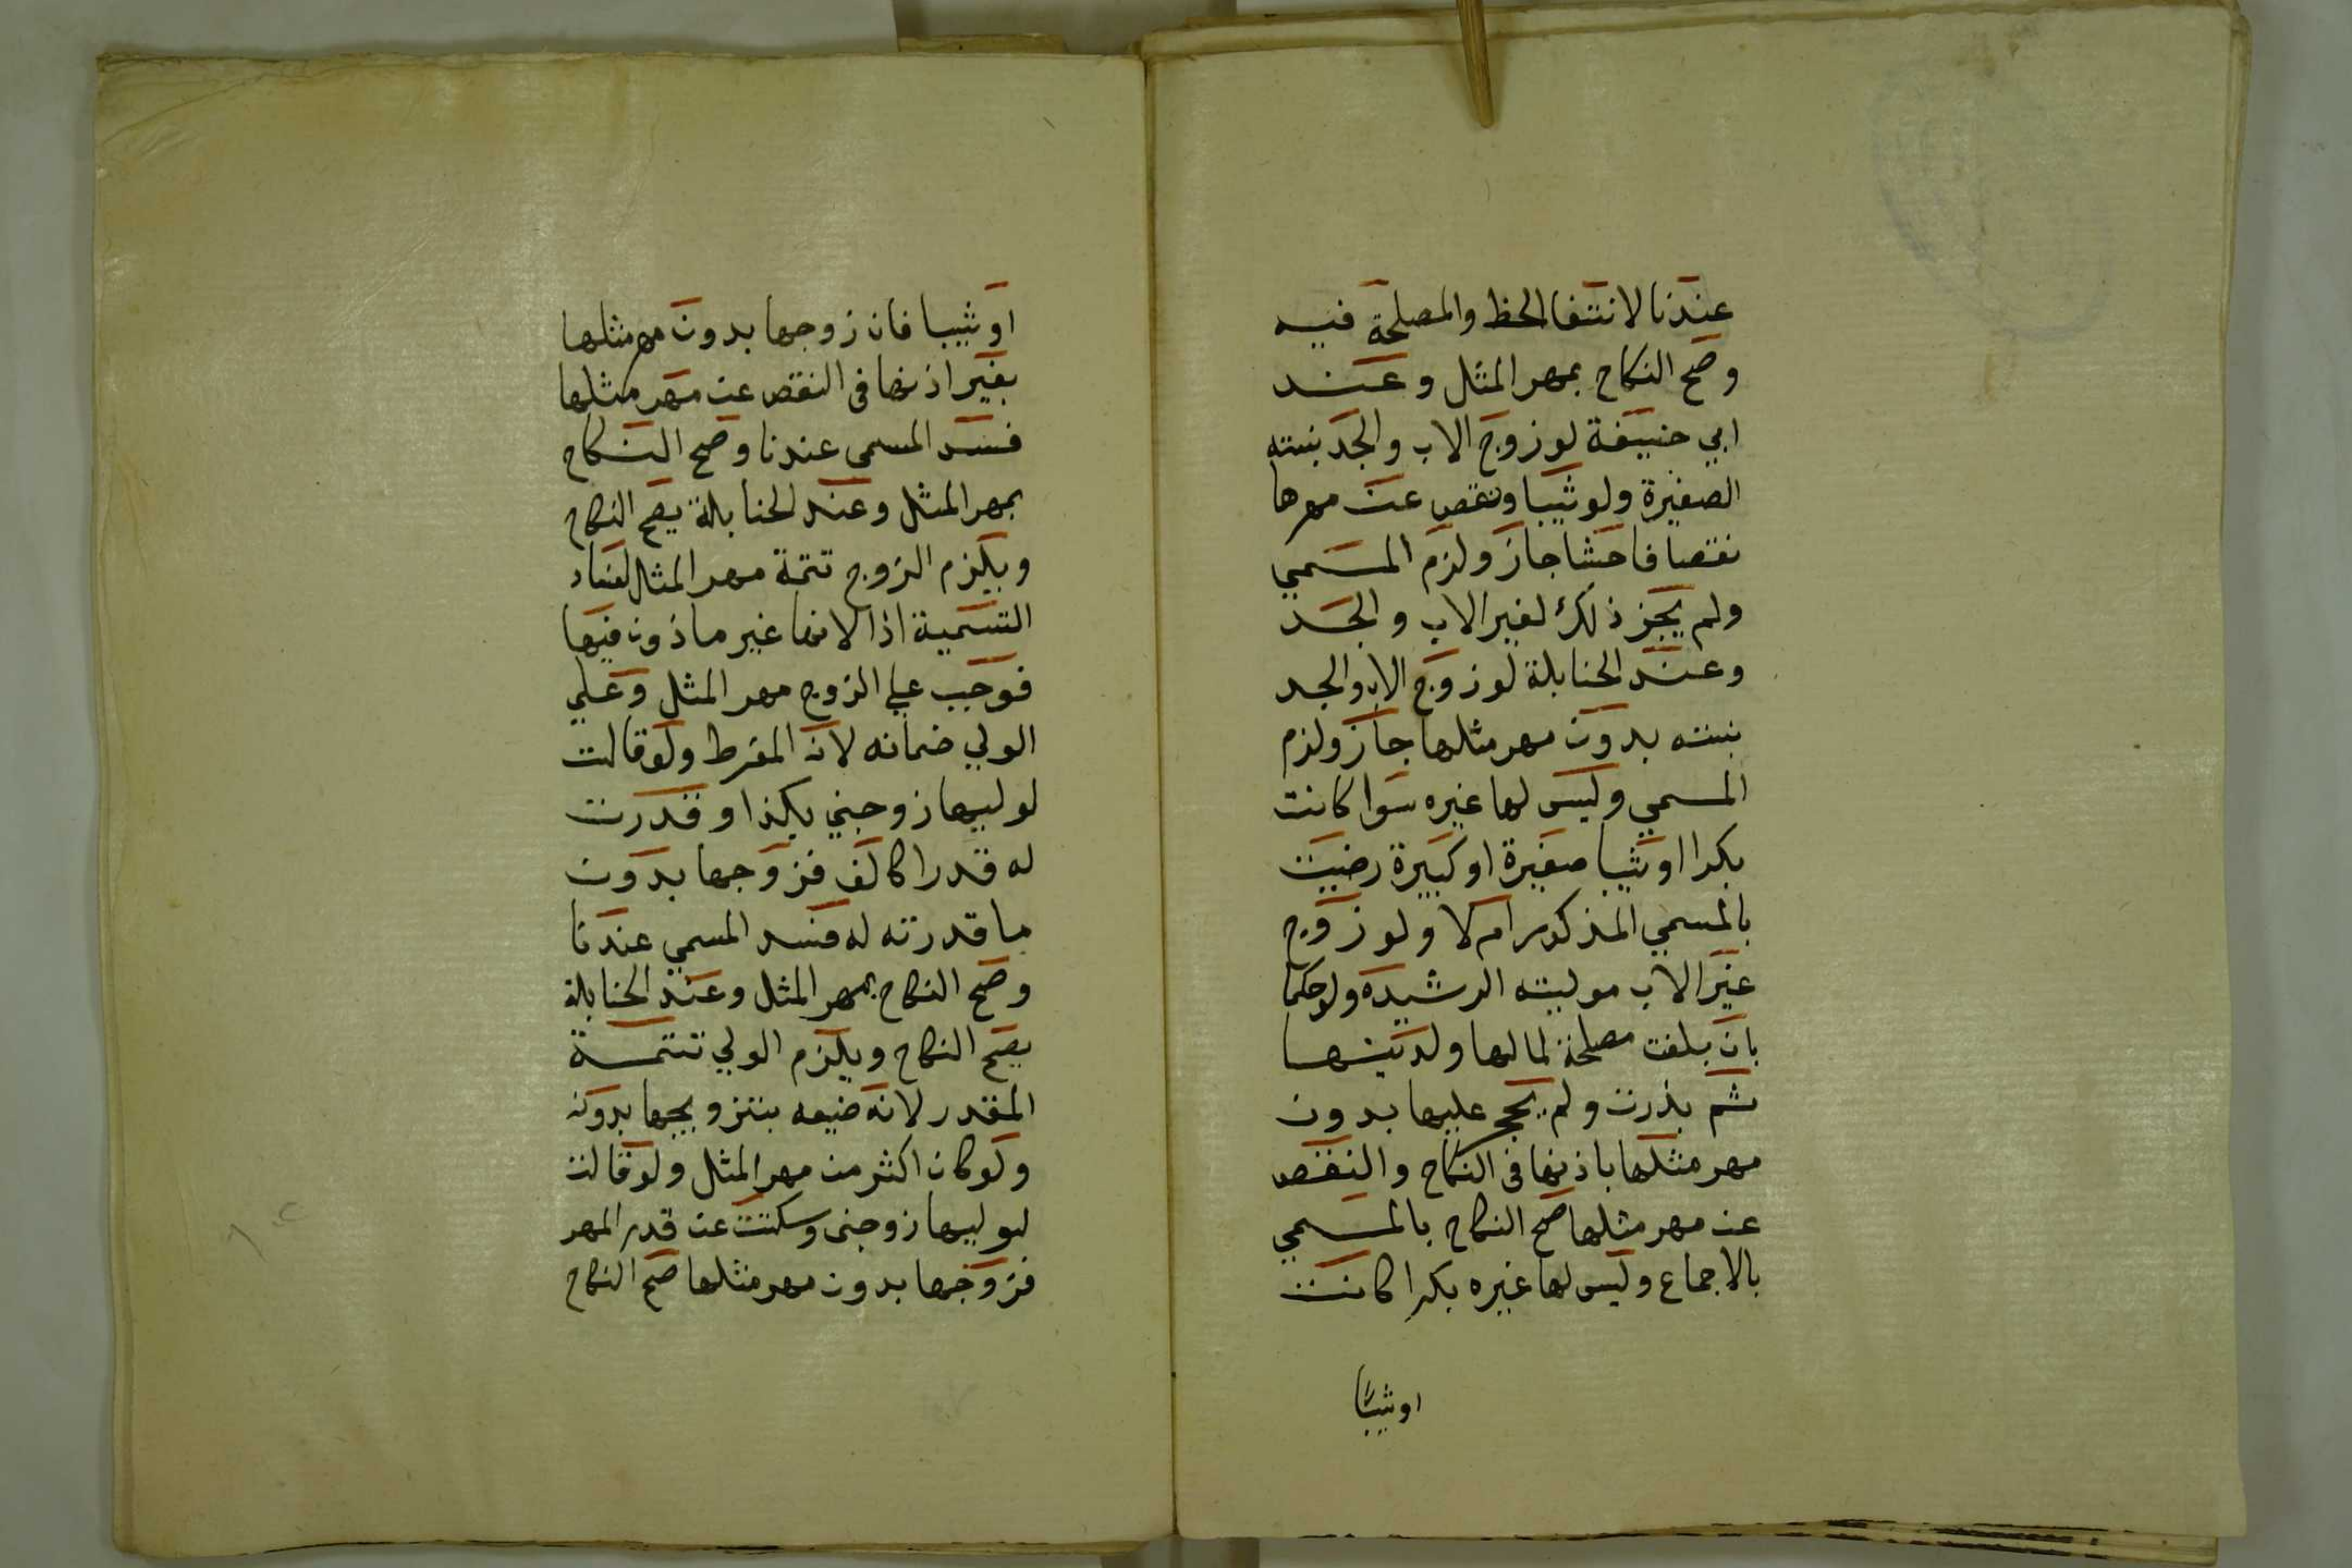 عندنا لانتفا الحظ والمصلحة فيه
وصح النكاح بمهر المثل وعند
ابي حنيفة لو زوج الاب والجد بنته
الصغيرة ولو ثيبا ونقص عن مهرها
نقصا فاحشا جاز ولزم المسمي
ولم يجز ذلك لغير الاب والجد
وعند الحنابلة لو زوج الاب والجد
بنته بدون مهر مثلها جاز ولزم
المسمي وليس لها غيره سوا كانت
بكرا او ثيبا صغيرة او كبيرة رضيت
بالمسمي المذكور ام لا ولو زوج
غير الاب موليته الرشيدة ولو حكما
بان بلغت مصلحة لمالها ولدينها
ثم بذرت ولم يحجر عليها بدون
مهر مثلها باذنها في النكاح والنقص
عن مهر مثلها صح النكاح بالمسمي
بالاجماع وليس لها غيره بكرا كانت
او ثيبًا
او ثيبا فان زوجها بدون مهر مثلها
بغير اذنها في النقص عن مهر مثلها
فسد المسمى عندنا وصح النكاح
بمهر المثل وعند الحنابلة يصح النكاح
ويلزم الزوج تتمة مهر المثل لفساد
التسمية اذا لانها غير ماذون فيها
فوجب علي الزوج مهر المثل وعلي
الولي ضمانه لانه المفرط ولو قالت
لوليها زوجني بكذا وقدرت
له قدرا كالف فزوجها بدون
ما قدرته له فسد المسمي عندنا
وصح النكاح بمهر المثل وعند الحنابلة
يصح النكاح ويلزم الولي تتمة
المقدر لانه ضيعه بتزويجها بدونه
ولو كان اكثر من مهر المثل ولو قالت
لوليها زوجني وسكتت عن قدر المهر
فزوجها بدون مهر مثلها صح النكاح